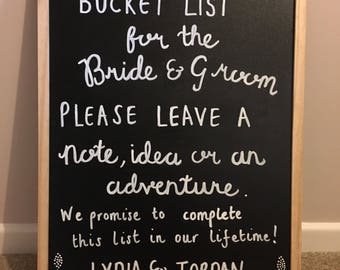 BUCKET LIST
for the
Bride & Groom
PLEASE LEAVE A
note, idea or an
adventure.
We promise to complete
this list in our lifetime!
LYDIA & JORDAN